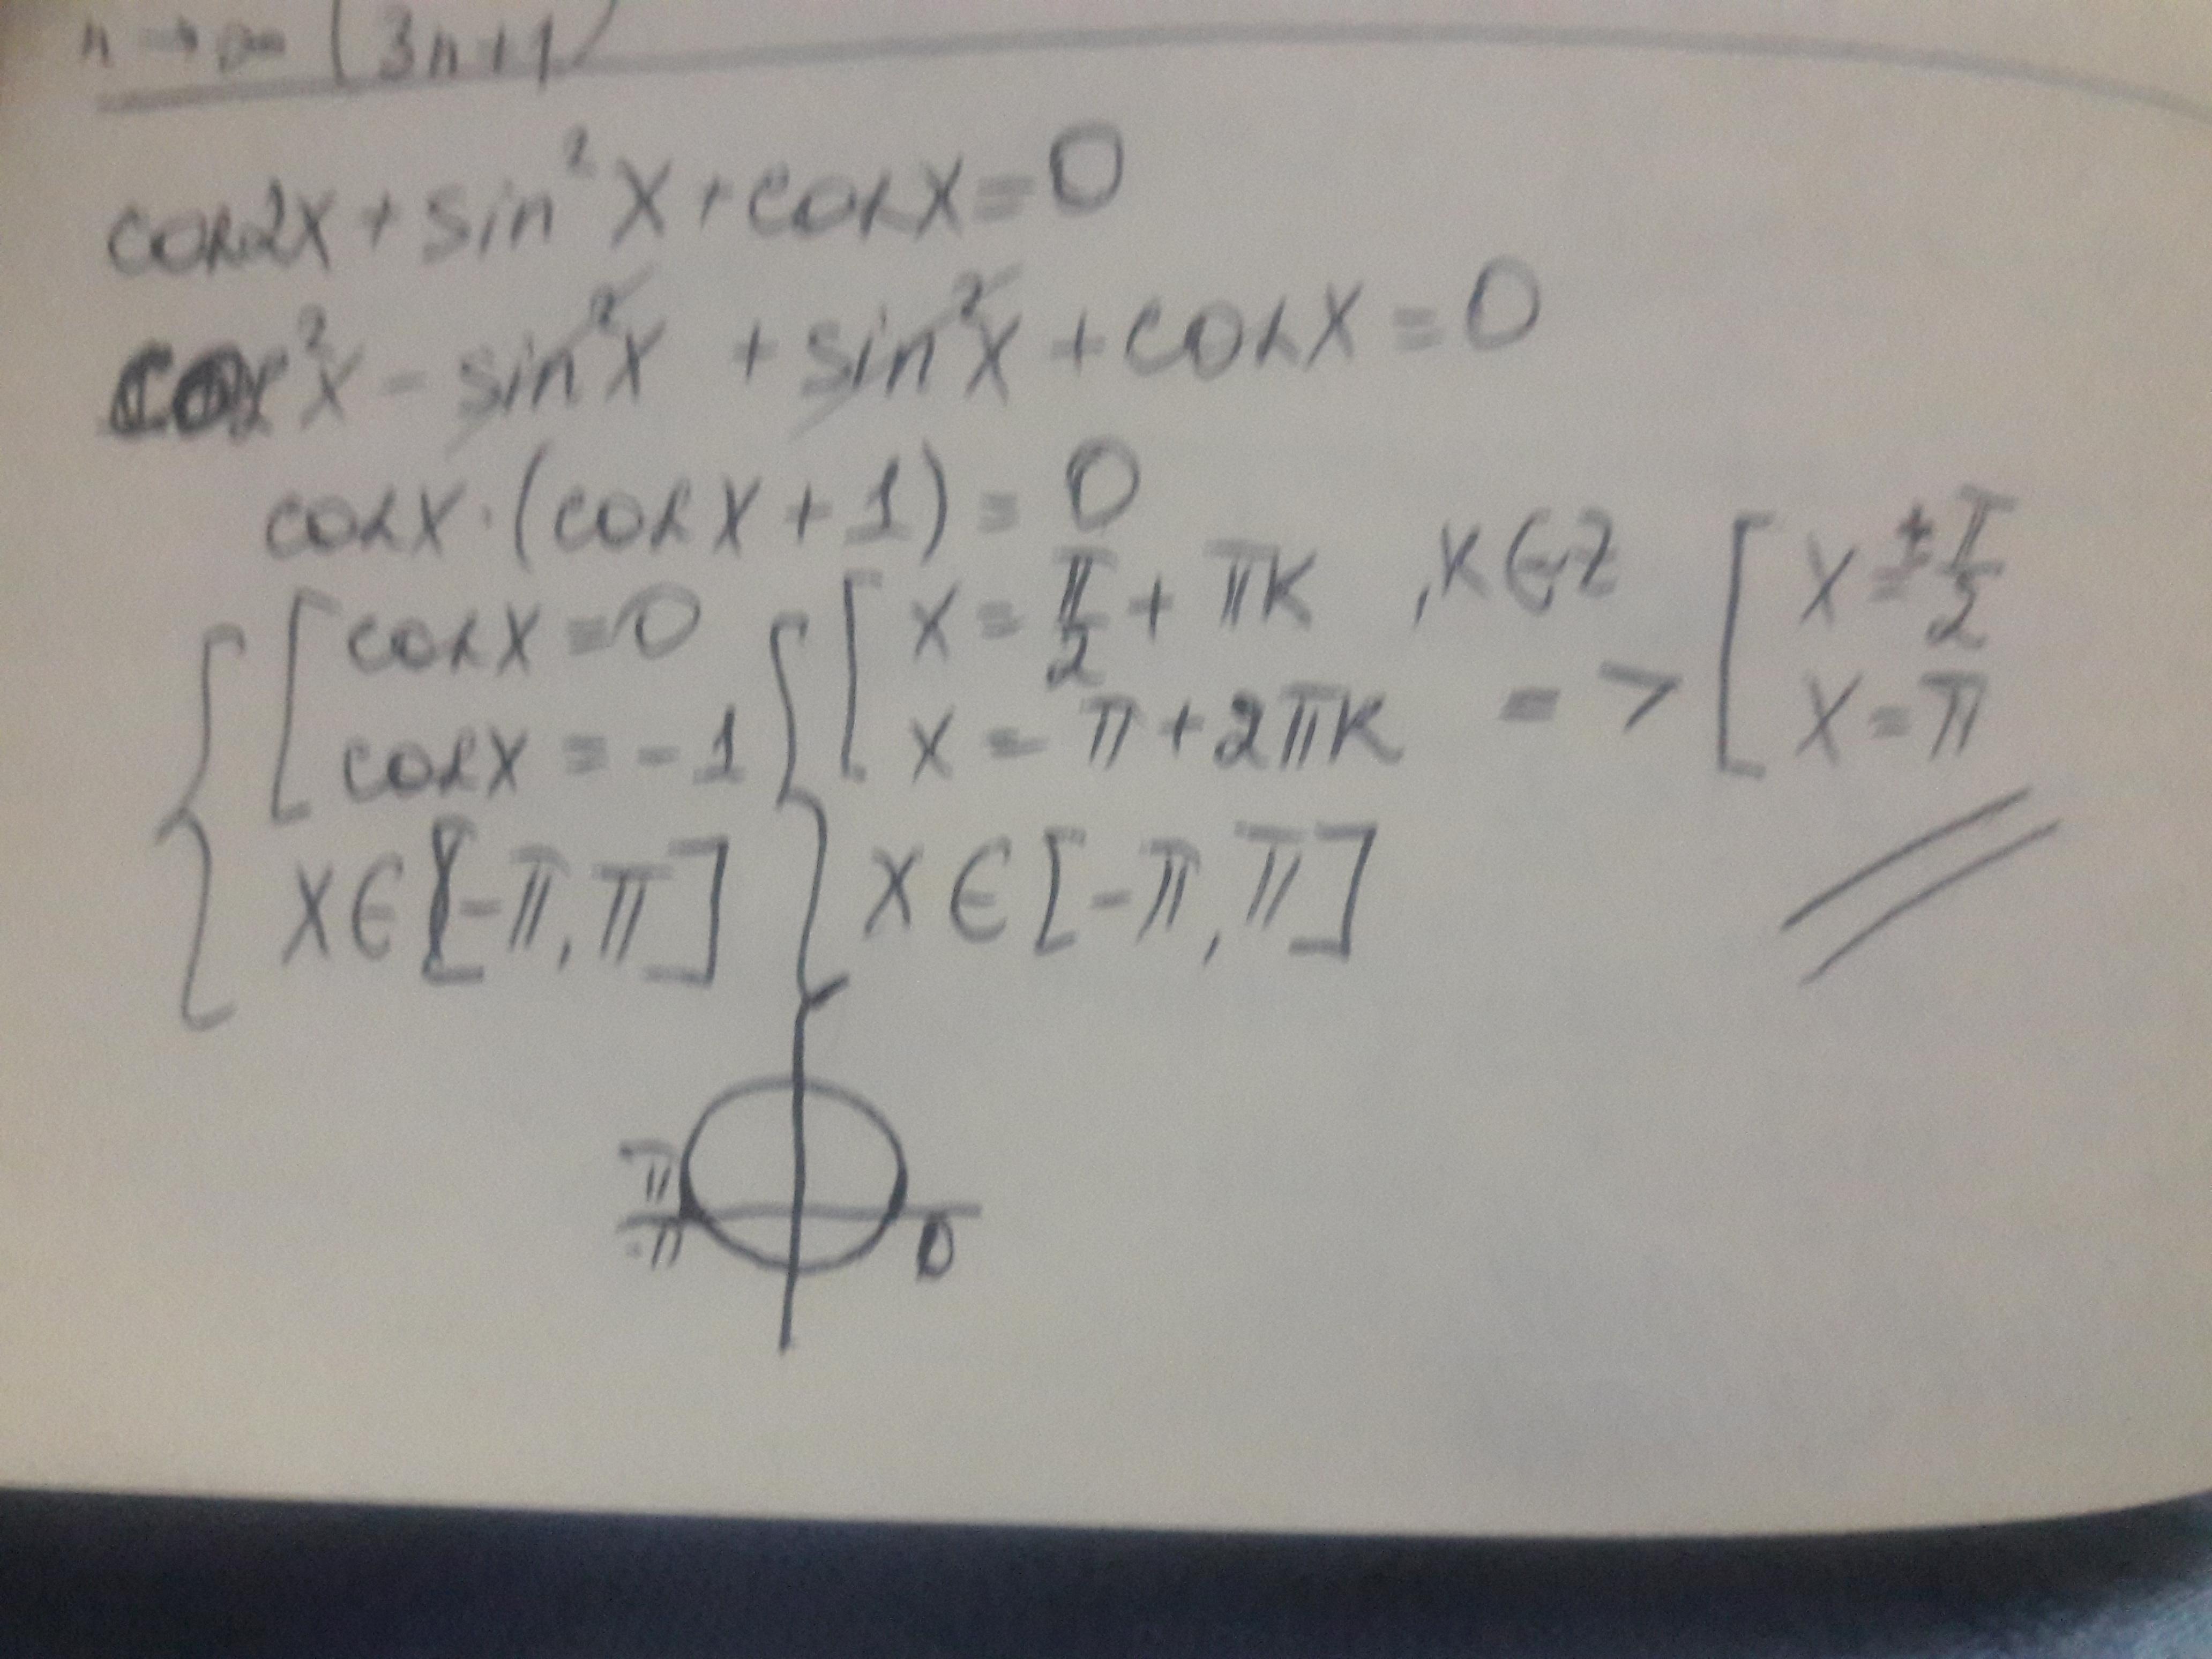 n → ∞ (3n+1)
cos2x + sin²x + cosx = 0
cos²x - sin²x + sin²x + cosx = 0
cosx · (cosx + 1) = 0
{ [ cosx = 0 { [ x = π/2 + πk , k ∈ Z [ x = ± π/2
cosx = -1 x = π + 2πk => x = π
x ∈ [-π, π] x ∈ [-π, π]
π
-π 0